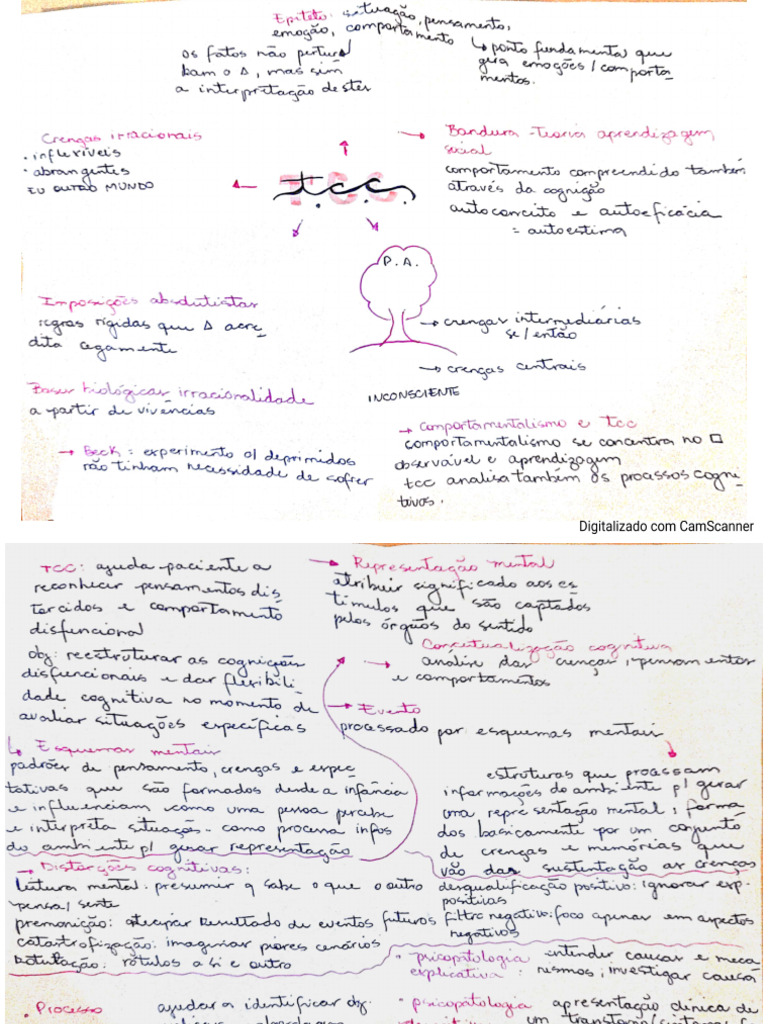 Epiteto: situação, pensamento,
emoção, comportamento
↳ ponto fundamental que
gera emoções / comporta-
mentos.
os fatos não pertur
bam o Δ, mas sim
a interpretação destes
Crenças irracionais
• inflexíveis
• abrangentes
EU OUTRO MUNDO
→ Bandura - Teoria aprendizagem
social
comportamento compreendido também
através da cognição
autoconceito e autoeficácia
= autoestima
T.C.C.
P.A.
→ crenças intermediárias
se / então
→ crenças centrais
INCONSCIENTE
Imposições absolutistas
regras rígidas que Δ acre-
dita cegamente
Bases biológicas irracionalidade
a partir de vivências
→ Beck: experimento c/ deprimidos
não tinham necessidade de sofrer
→ Comportamentalismo e tcc
comportamentalismo se concentra no □
observável e aprendizagem
tcc analisa também os processos cogni-
tivos.
Digitalizado com CamScanner
TCC: ajuda paciente a
reconhecer pensamentos dis
torcidos e comportamento
disfuncional
obj: reestruturar as cognições
disfuncionais e dar flexibili-
dade cognitiva no momento de
avaliar situações específicas
→ Representação mental
atribuir significado aos es
tímulos que são captados
pelos órgãos do sentido
→ Conceitualização cognitiva
análise das crenças, pensamentos
e comportamentos
→ Evento
processado por esquemas mentais
↳ Esquemas mentais
padrões de pensamento, crenças e expec-
tativas que são formados desde a infância
e influenciam como uma pessoa percebe
e interpreta situação - como processa infos
do ambiente p/ gerar representação
estruturas que processam
informações do ambiente p/ gerar
uma representação mental; forma
dos basicamente por um conjunto
de crenças e memórias que
vão dar sustentação as crenças
→ Distorções cognitivas:
leitura mental: presumir q sabe o que o outro
pensa / sente
premonição: antecipar resultado de eventos futuros
catastrofização: imaginar piores cenários
Rotulação: rótulos a si e outro
desqualificação positivo: ignorar exp.
positivas
filtro negativo: foco apenas em aspectos
negativos
• psicopatologia entender causas e meca
explicativa: nismos, investigar causas
• Processo ajudar a identificar obj.
• psicopatologia apresentação clínica de